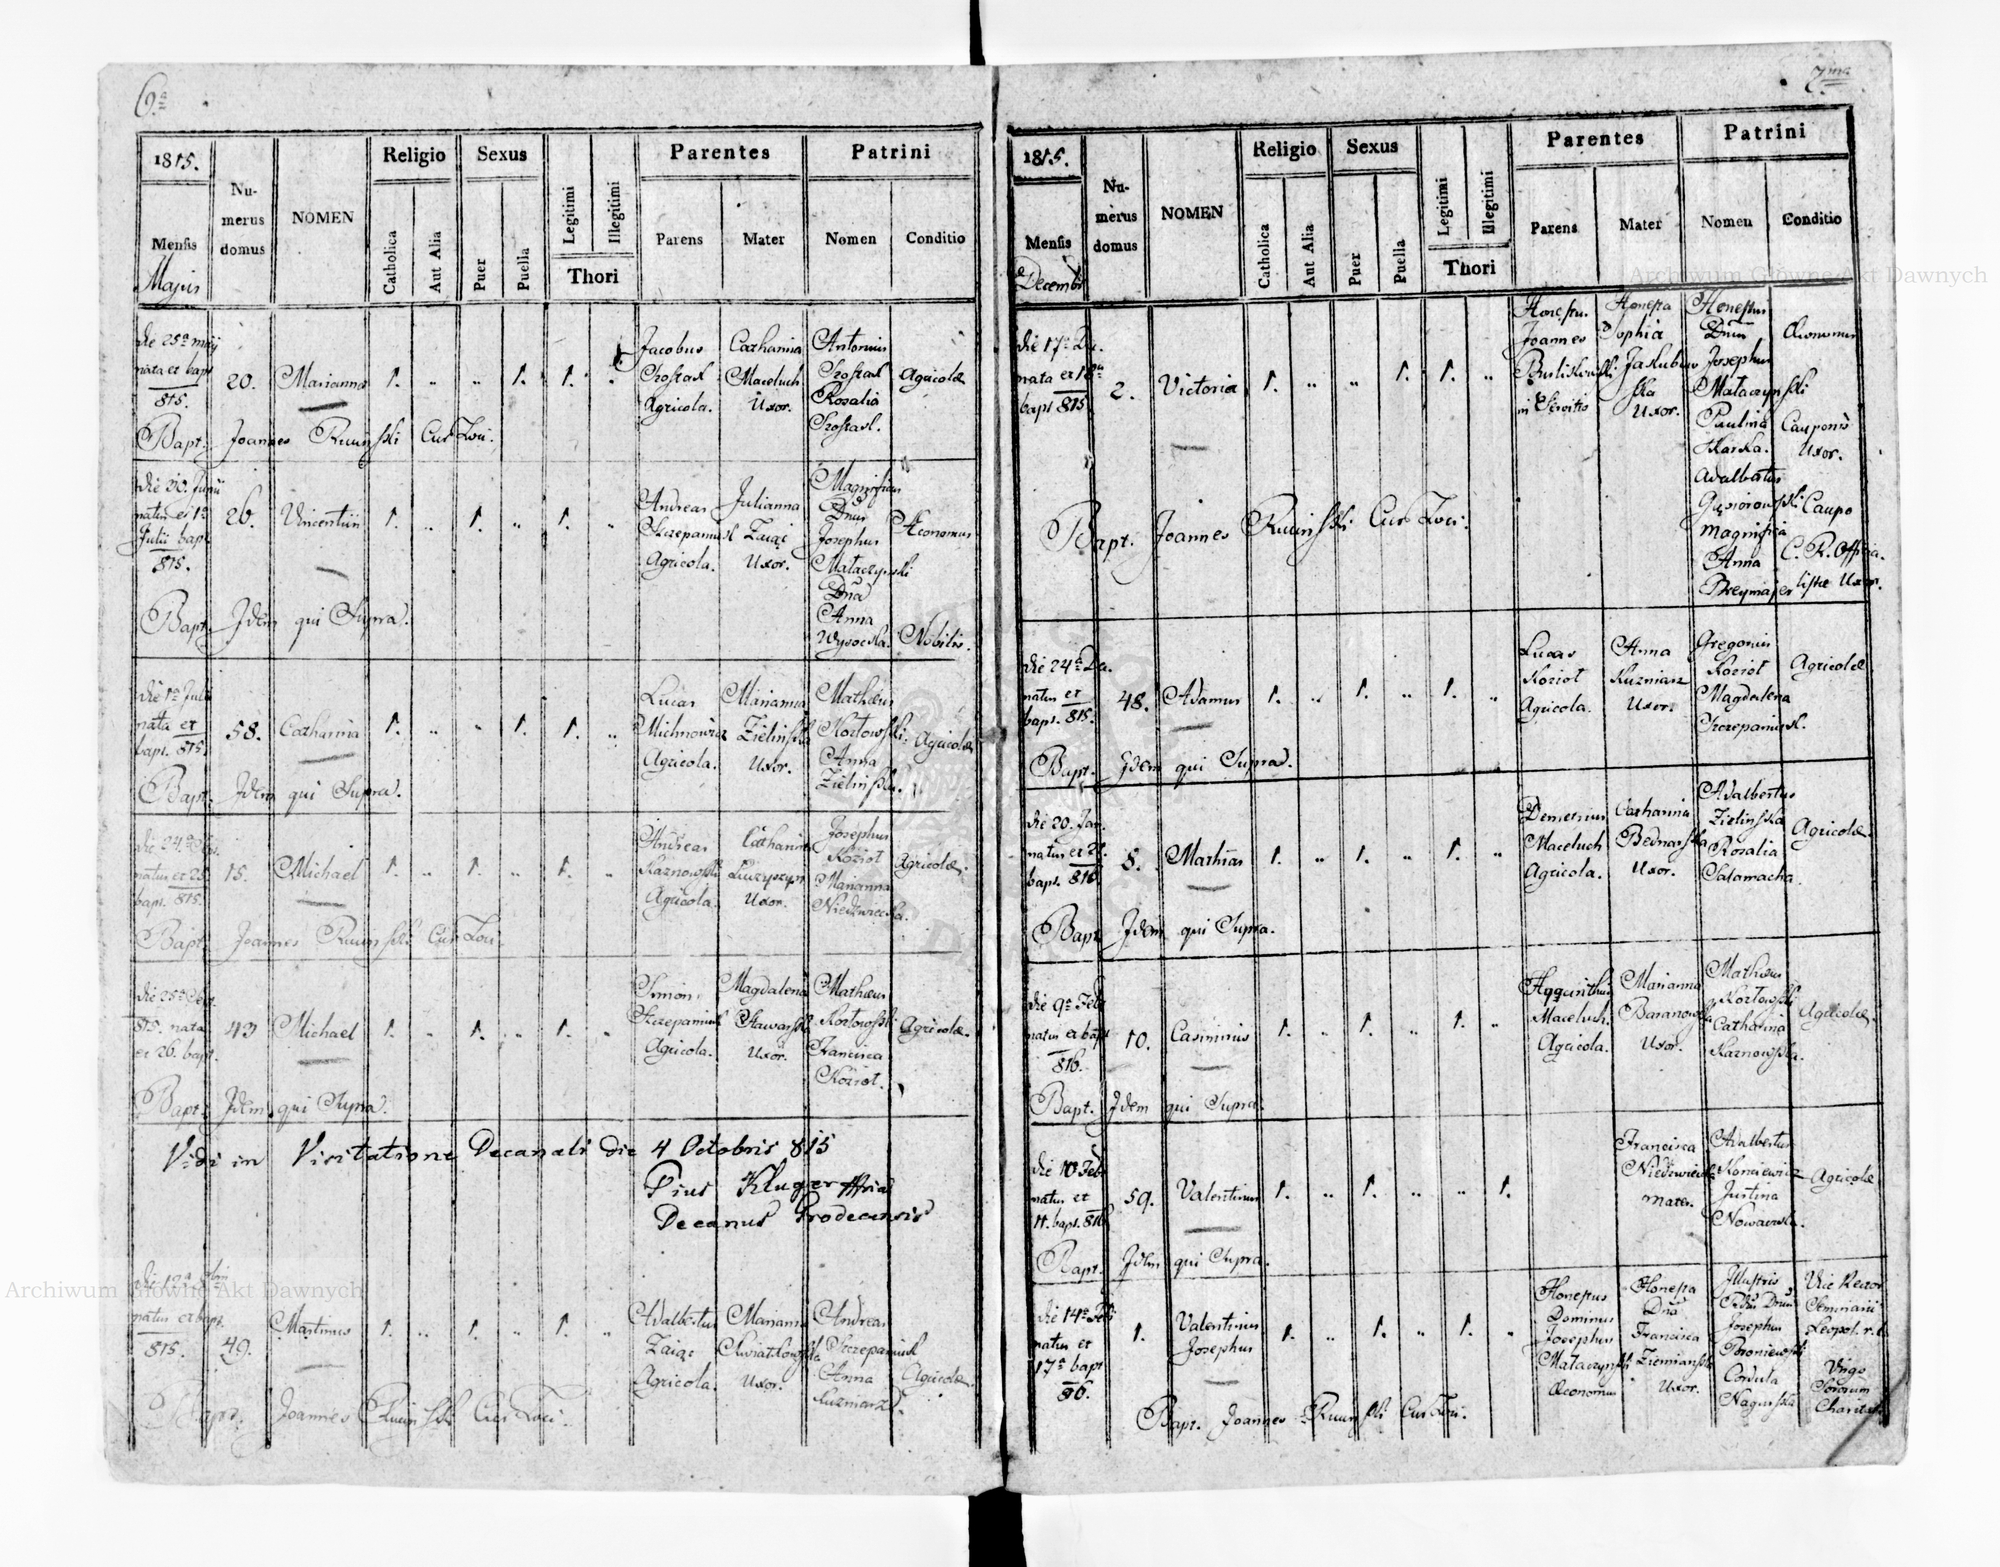 6ª
1815.
Numerus domus
NOMEN
Religio
Sexus
Parentes
Patrini
Catholica
Aut Alia
Puer
Puella
Legitimi
Illegitimi
Thori
Parens
Mater
Nomen
Conditio
Mensis
Majus
die 25ª maij
nata et bapt
815.
20.
Marianna
1.
1.
1.
Jacobus
Agricola.
Catharina
Maceluch
Uxor.
Antonius
Rosalia
Agricolæ
Bapt. Joannes Cur Loci.
die 30. Junii
natus et 1ª
Julii bapt
815.
26.
Vincentii
1.
1.
1.
Andreas
Szczepaniuk
Agricola.
Julianna
Zaiąc
Uxor.
Magnificus
Dnus
Josephus
Mataczynski
Dna
Anna
Wysocka.
Æconomus
Nobilis.
Bapt. Idem qui Supra.
die 1ª Julii
nata et
bapt. 815
58.
Catharina
1.
1.
1.
Lucas
Michnowicz
Agricola.
Marianna
Zielinska
Uxor.
Mathæus
Kozłowski
Anna
Zielinska.
Agricolæ
Bapt. Idem qui Supra.
natus et 25
bapt. 815.
15.
Michael
1.
1.
1.
Andreas
Agricola.
Catharina
Uxor.
Josephus
Kozioł
Marianna
Niedzwiecka.
Agricolæ.
Bapt. Joannes Cur Loci.
die 25ª Sept.
815. nata
et 26. bapt.
43
Michael
1.
1.
1.
Simon
Szczepaniuk
Agricola.
Magdalena
Uxor.
Mathæus
Kozłowski
Francisca
Kozioł.
Agricolæ.
Bapt. Idem qui Supra.
Vidi in Visitatione Decanali die 4 Octobris 815
Pius Kluger
Decanus Grodecensis
natus et bapt.
815.
49.
Martinus
1.
1.
1.
Adalbertus
Zaiąc
Agricola.
Marianna
Kwiatkowska
Uxor.
Andreas
Szczepaniuk
Anna
Kuzniarz.
Agricolæ.
Bapt. Joannes Cur Loci.
7ma
1815.
Numerus domus
NOMEN
Religio
Sexus
Parentes
Patrini
Catholica
Aut Alia
Puer
Puella
Legitimi
Illegitimi
Thori
Parens
Mater
Nomen
Conditio
Mensis
Decembr
die 17ª De.
nata et 18ª
bapt 815
2.
Victoria
1.
1.
1.
Honestus
Joannes
in Servitio
Honesta
Sophia
Jaskubow
ska
Uxor.
Honestus
Dnus
Josephus
Mataczynski
Paulina
Skarska.
Adalbertus
Gąsiorowski
Magnifica
Anna
Œconomus
Cauponis
Uxor.
Caupo
C. R. Officia-
listæ Uxor.
Bapt. Joannes Cur Loci.
die 24ª De.
natus et
bapt. 815.
48.
Adamus
1.
1.
1.
Lucas
Kozioł
Agricola.
Anna
Kuzniarz
Uxor.
Gregorius
Kozioł
Magdalena
Szczepaniuk.
Agricolæ
Bapt. Idem qui Supra.
die 20. Jan.
natus et 21.
bapt. 816.
8.
Mathias
1.
1.
1.
Demetrius
Maceluch
Agricola.
Catharina
Bednarska
Uxor.
Adalbertus
Zielinska
Rosalia
Salamacha.
Agricolæ.
Bapt Idem qui Supra.
die 9ª Feb.
natus et bapt
816.
10.
Casimirus
1.
1.
1.
Hyacinthus
Maceluch.
Agricola.
Marianna
Baranowska
Uxor.
Mathæus
Kozłowski
Catharina
Agricolæ.
Bapt. Idem qui Supra.
die 10 Feb
natus et
11. bapt. 816
59.
Valentinus
1.
1.
1.
Francisca
Niedzwiecka
Mater.
Adalbertus
Justina
Nowacka.
Agricolæ
Bapt. Idem qui Supra.
die 14ª Feb
natus et
17ª bapt
816.
1.
Valentinus
Josephus
1.
1.
1.
Honestus
Dominus
Josephus
Mataczynski
Œconomus
Honesta
Dna
Francisca
Ziemianska
Uxor.
Illustris
Josephus
Broniewski
Cordula
Nagurska
Vice Rector
Seminarii
Leopol. r. l.
Virgo
Sororum
Charitatis
Bapt. Joannes Cur Loci.
Archiwum Główne Akt Dawnych
Archiwum Główne Akt Dawnych